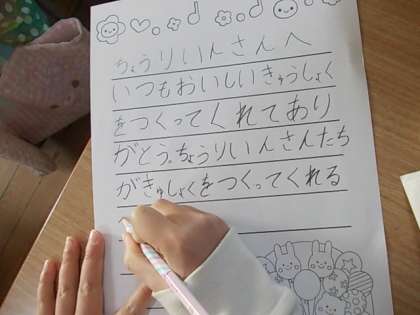 ちょうりいんさんへ
いつもおいしいきゅうしょく
をつくってくれてあり
がとう。ちょうりいんさんたち
がきゅしょくをつくってくれる